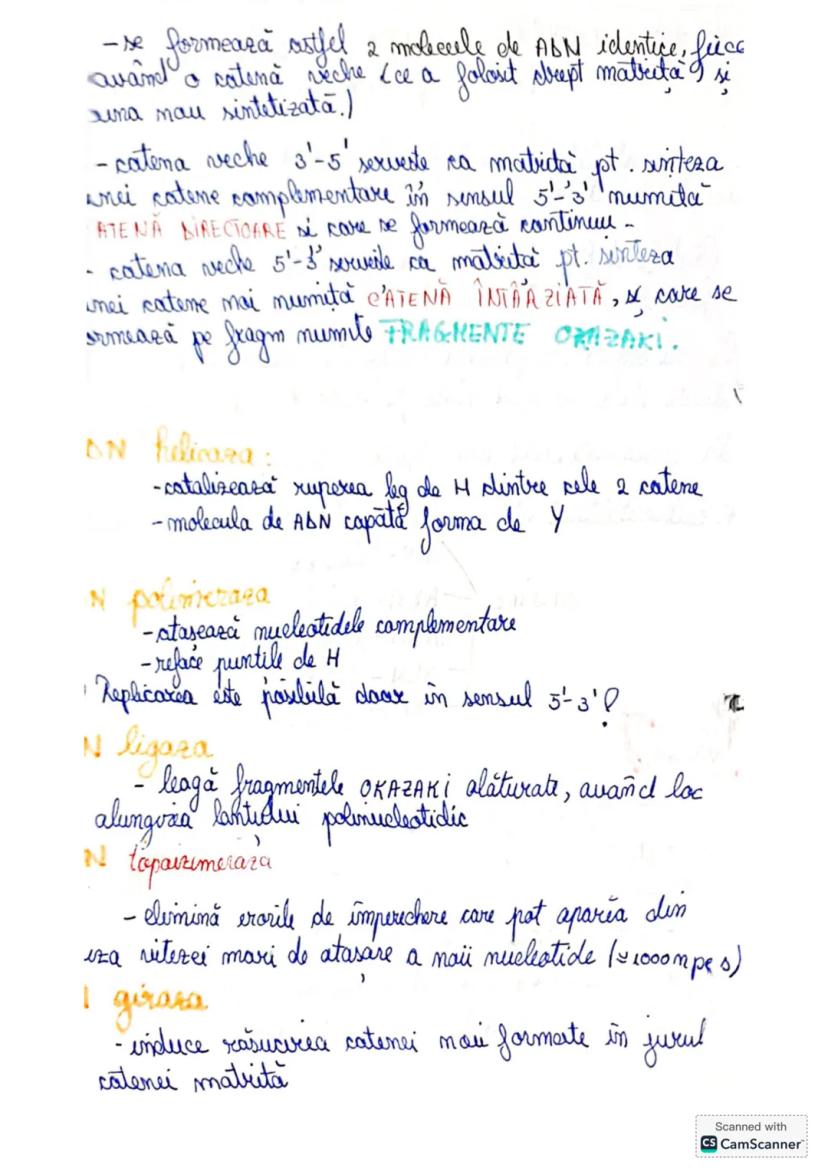 - se formează astfel 2 molecule de ADN identice, fiece
având o catenă veche (ce a folosit drept matriță) și
una nou sintetizată.)
- catena veche 3'-5' servește ca matriță pt. sinteza
unei catene complementare în sensul 5'-3' numită
ATENĂ DIRECTOARE și care se formează continuu -
- catena veche 5'-3' servește ca matriță pt. sinteza
unei catene noi numită CATENĂ ÎNTÂRZIATĂ, și care se
ormează pe fragm numite FRAGMENTE OKAZAKI.
DN helicaza:
-catalizează ruperea leg de H dintre cele 2 catene
- molecula de ADN capătă forma de Y
N polimeraza
-atașează nucleotidele complementare
-reface punțile de H
! Replicarea este posibilă doar în sensul 5'-3' !
N ligaza
- leagă fragmentele OKAZAKI alăturate, având loc
alungirea lanțului polinucleotidic
N topoizimeraza
- elimină erorile de împerechere care pot apărea din
uza vitezei mari de atașare a noii nucleotide (≈1000 n pe s)
giraza
- induce răsucirea catenei nou formate în jurul
catenei matriță
Scanned with
CS CamScanner